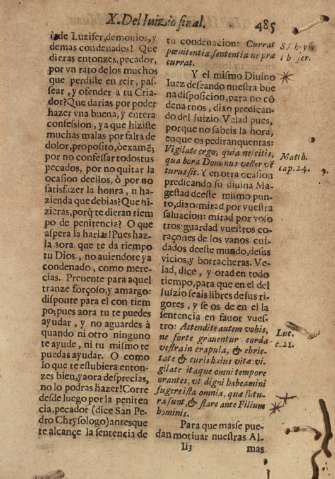 X. Del Iuizio final. 485
ia de Luzifer, demonios, y
demas condenados! Que
dieras entonzes, pecador,
por vn rato de los muchos
que perdiste en reir, pas-
sear, y ofender a tu Cria-
dor? Que darias por poder
hazer vna buena, y entera
confesion, ya que hiziste
muchas malas por falta de
dolor, proposito, ò examẽ,
por no confessar todos tus
pecados, por no quitar la
ocasion decilos, ò por no
satisfazer la honra, u ha-
zienda que debias? Que hi-
zieras, porq̃ te dieran tiem
po de penitencia? O que
aspera la harias! Pues haz-
la aora que te da tiempo
tu Dios, no auiendore ya
condenado, como mere-
cias. Preuente para aquel
tranze forçoso, y amargo:
dispoute para el con tiem
po; pues aora tu te puedes
ayudar, y no aguardes à
quando ni otro ninguno
te ayude, ni tu mismo te
puedas ayudar. O como
lo que te estubiera enton-
zes bien, y aora desprecias,
no lo podras hazer! Corre
desde luego por la peniten
cia, pecador (dice San Pe-
dro Chrysologo) antes que
te alcançe la sentencia de
tu condenacion: Currat
pœnitentia, sententia ne præ
currat.
Y el mismo Diuino
Iuez deseando nuestra bue
na disposicion, para no cõ
denarnos, dixo predican-
do del Iuizio. Velad pues,
porque no sabeis la hora,
en que os pediran quentas:
Vigilate ergo, quia nescitis,
qua hora Dominus vester vẽ
turus sit. Y en otra ocasion
predicando su diuina Ma-
gestad deesle mismo pun-
to, dixo: mirad por vuestra
saluacion: mirad por voso
tros: guardad vuestros co-
raçones de los vanos cui-
dados deeste mundo, de sus
vicios, y borracheras. Ve-
lad, dice, y orad en todo
tiempo, para que en el del
Iuizio seais libres de sus ri-
gores, y se os dé en él la
sentencia en fauor vues-
tro: Attendite autem vobis,
ne forte grauentur corda
vestra in crapula, & ebrie-
tate & curis huius vitæ: vi-
gilate itaque omni tempore
orantes, vt digni habeamini
fugere ista omnia, quæ futu-
ra sunt, & stare ante Filium
hominis.
Para que màs se pue-
dan motiuar nuestras Al-
Ii3 mas
Matth.
cap. 24.
Luc.
c. 21.